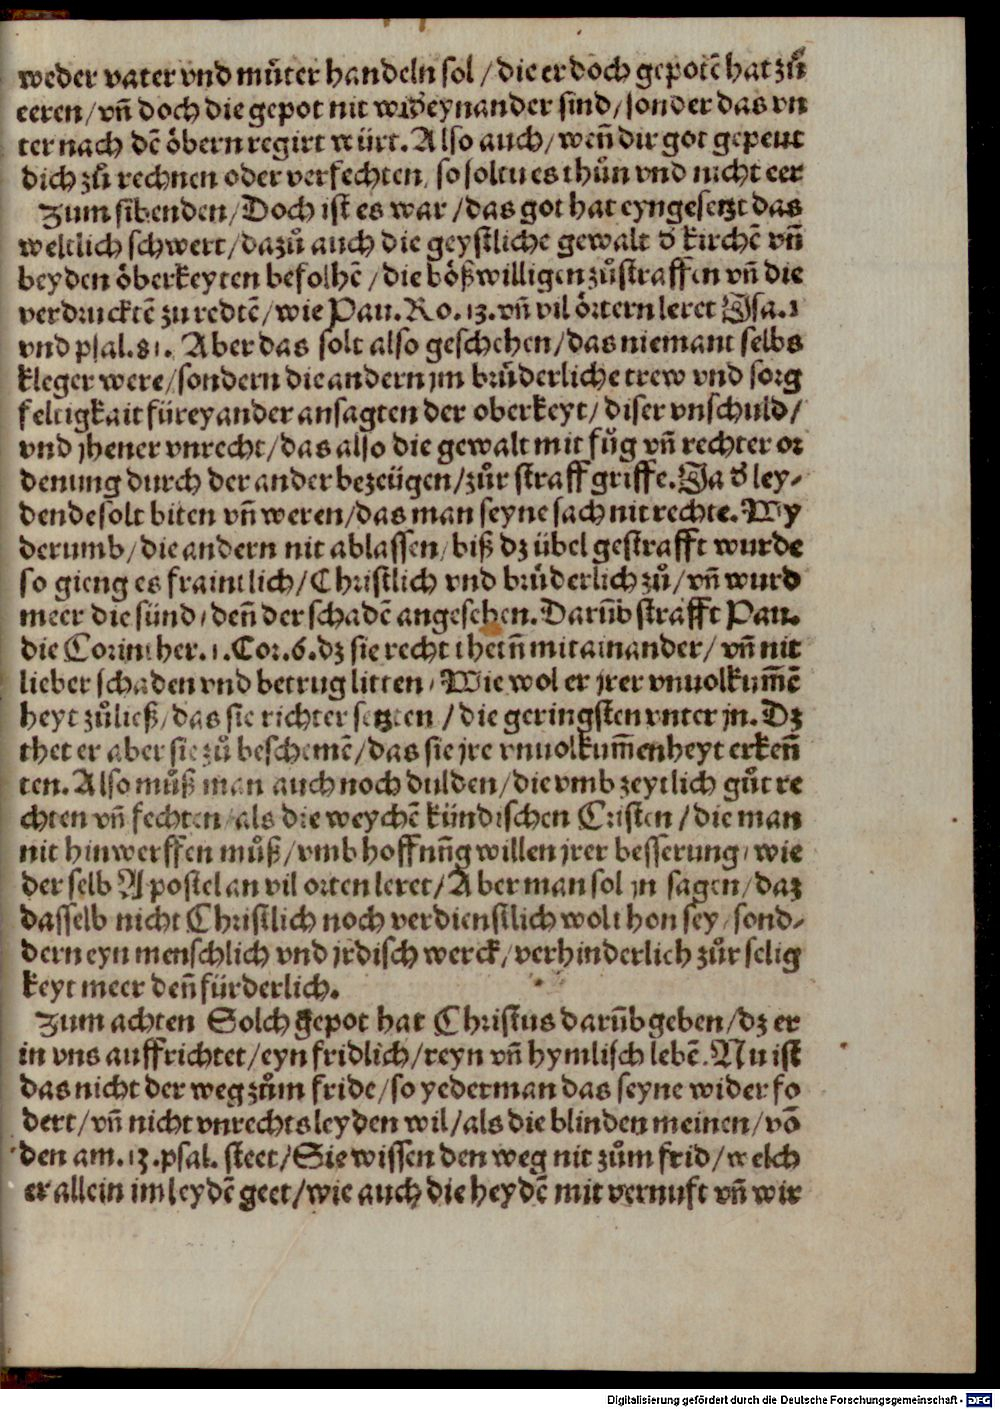 weder vater vnd můter handeln sol / die er doch gepotē hat zů
eeren / vñ doch die gepot nit wid' eynander sind / sonder das vn
ter nach dē öbern regirt würt. Also auch / weñ dir got gepeut
dich zů rechnen oder verfechten, so soltu es thůn vnd nicht eer
Zum sibenden / Doch ist es war / das got hat eyngesetzt das
weltlich schwert / dazů auch die geystliche gewalt d' kirchē vñ
beyden öberkeyten befolhē / die bößwilligen zůstraffen vñ die
verdrucktē zu redtē / wie Pau. Ro. 13. vñ vil örtern leret Isa. 1
vnd psal. 81. Aber das solt also geschehen / das niemant selbs
kleger were / sondern die andern jm brůderliche trew vnd sorg
feltigkait für eyander ansagten der oberkeyt / diser vnschuld /
vnd jhener vnrecht / das also die gewalt mit fůg vñ rechter or
denung durch der ander bezeügen / zůr straff griffe. Ja d' ley-
dende solt biten vñ weren / das man seyne sach nit rechte. Wy
derumb / die andern nit ablassen / biß dz übel gestrafft wurde
so gieng es fraintlich / Christlich vnd brůderlich zů / vñ wurd
meer die sünd / deñ der schadē angesehen. Darūb strafft Pau.
die Corinther. 1. Cor. 6. dz sie recht thetñ mit ainander / vñ nit
lieber schaden vnd betrug litten / Wie wol er jrer vnuolkum̄ē
heyt zůließ / das sie richter setzten / die geringsten vnter jn. Dz
thet er aber sie zů beschemē / das sie jre vnuolkum̄enheyt erkeñ
ten. Also můß man auch noch dulden / die vmb zeytlich gůt re
chten vñ fechten / als die weychē kündischen Cristen / die man
nit hinwerffen můß / vmb hoffnūg willen jrer besserung / wie
der selb Apostel an vil orten leret / Aber man sol jn sagen / daz
dasselb nicht Christlich noch verdienstlich wolthon sey / sond-
dern eyn menschlich vnd jrdisch werck / verhinderlich zůr selig
keyt meer deñ fürderlich.
Zum achten Solch gepot hat Christus darūb geben / dz er
in vns auffrichtet / eyn fridlich / reyn vñ hymlisch lebē. Nu ist
das nicht der weg zům fride / so yederman das seyne wider fo
dert / vñ nicht vnrechts leyden wil / als die blinden meinen / vō
den am. 13. psal. steet / Sie wissen den weg nit zům frid / welch
er allein im leydē geet / wie auch die heydē mit vernuft vñ wir
Digitalisierung gefördert durch die Deutsche Forschungsgemeinschaft - DFG